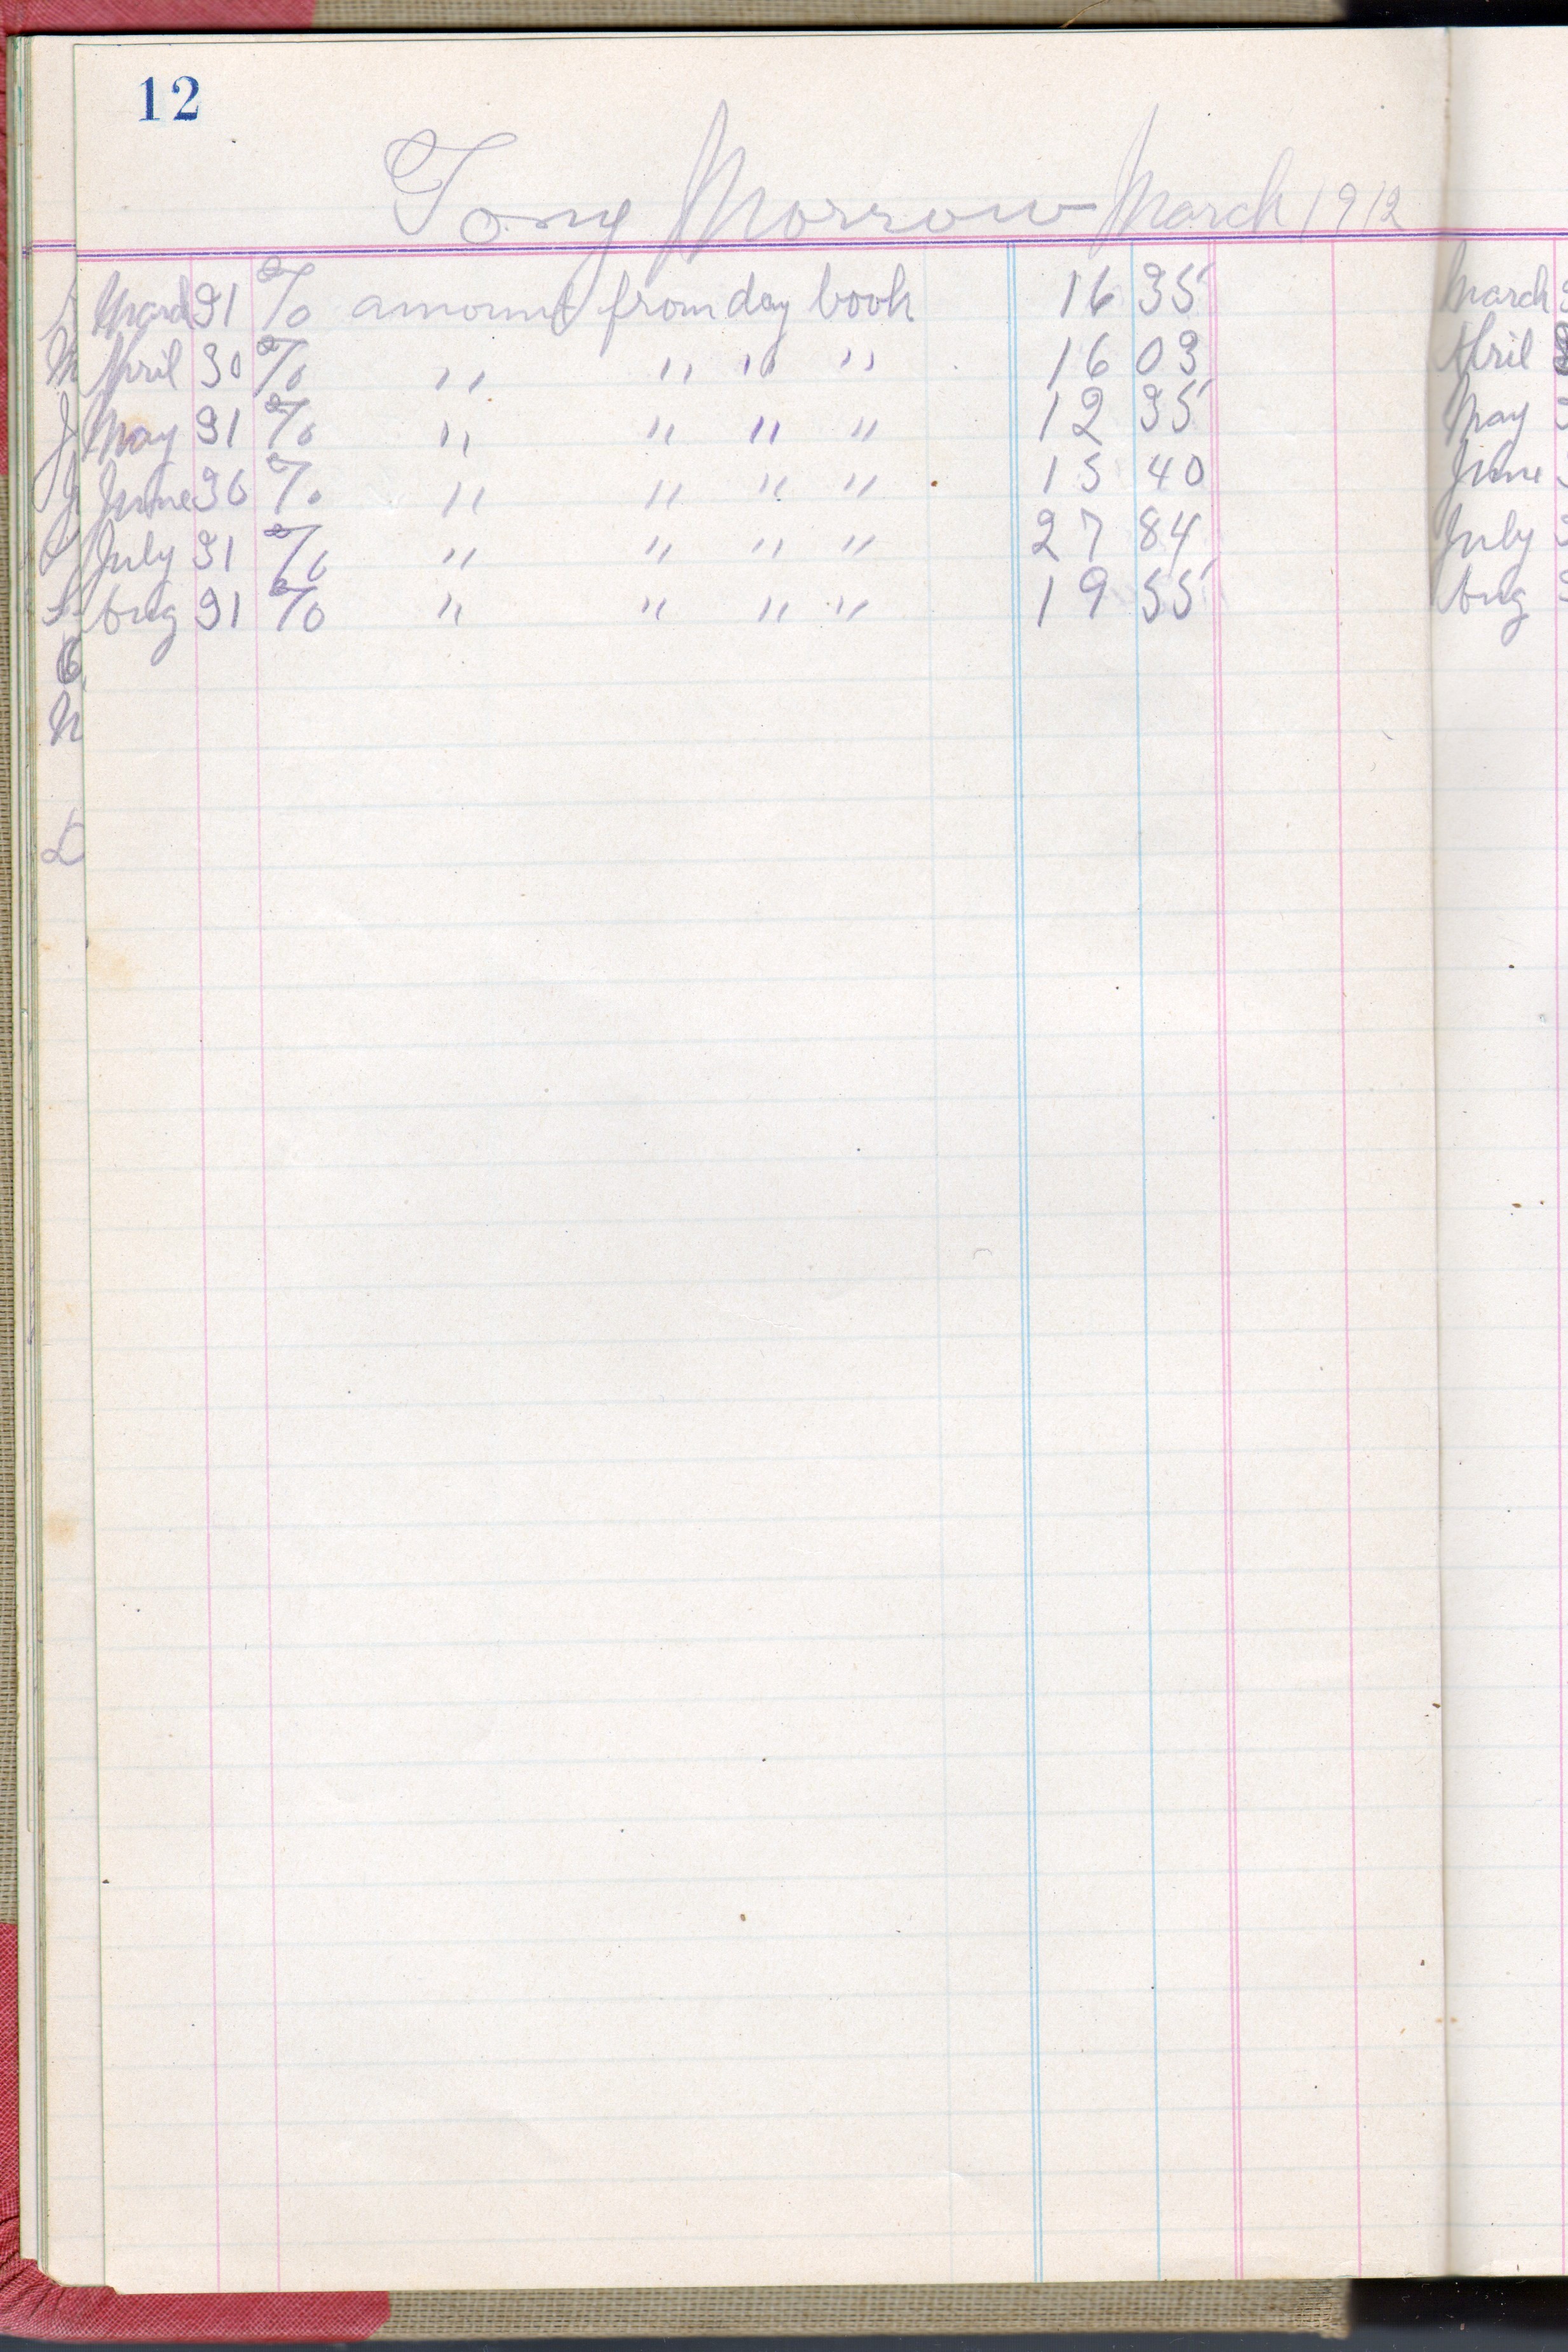 12
Tony Morrow March 1912
March 31 % amount from day book 16 35
April 30 % " " " " 16 03
May 31 % " " " " 12 35
June 30 % " " " " 15 40
July 31 % " " " " 27 84
Aug 31 % " " " " 19 55
March
April
May
June
July
Aug